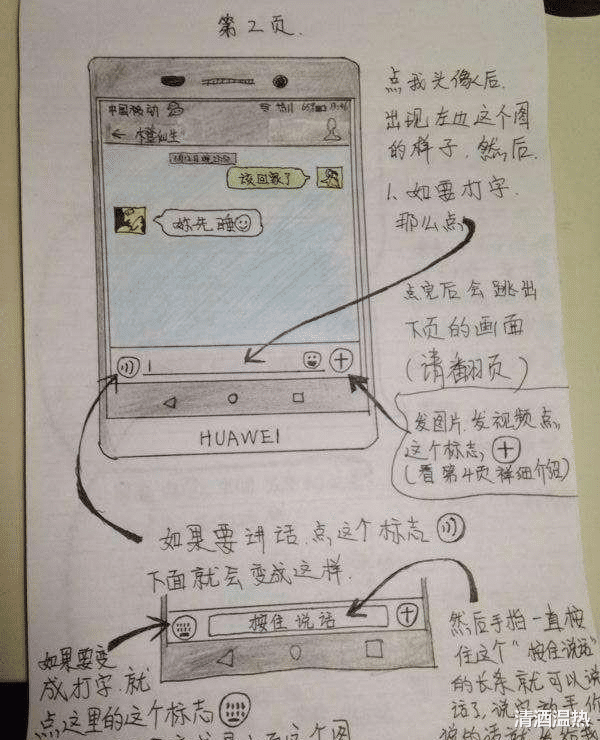 第2页.
中国移动
13:46
该回家了
妳先睡
HUAWEI
点我头像后.
出现左边这个图
的样子,然后.
1.如要打字.
那么点
点完后会跳出
下页的画面
(请翻页)
发图片.发视频点
这个标志,
(看第4页祥细介绍)
如果要讲话.点这个标志
下面就会变成这样.
按住说话
如果要变
成打字.就
点这里的这个标志
然后手指一直按
住这个"按住说话"
的长条就可以说
话了,说完
清酒温热